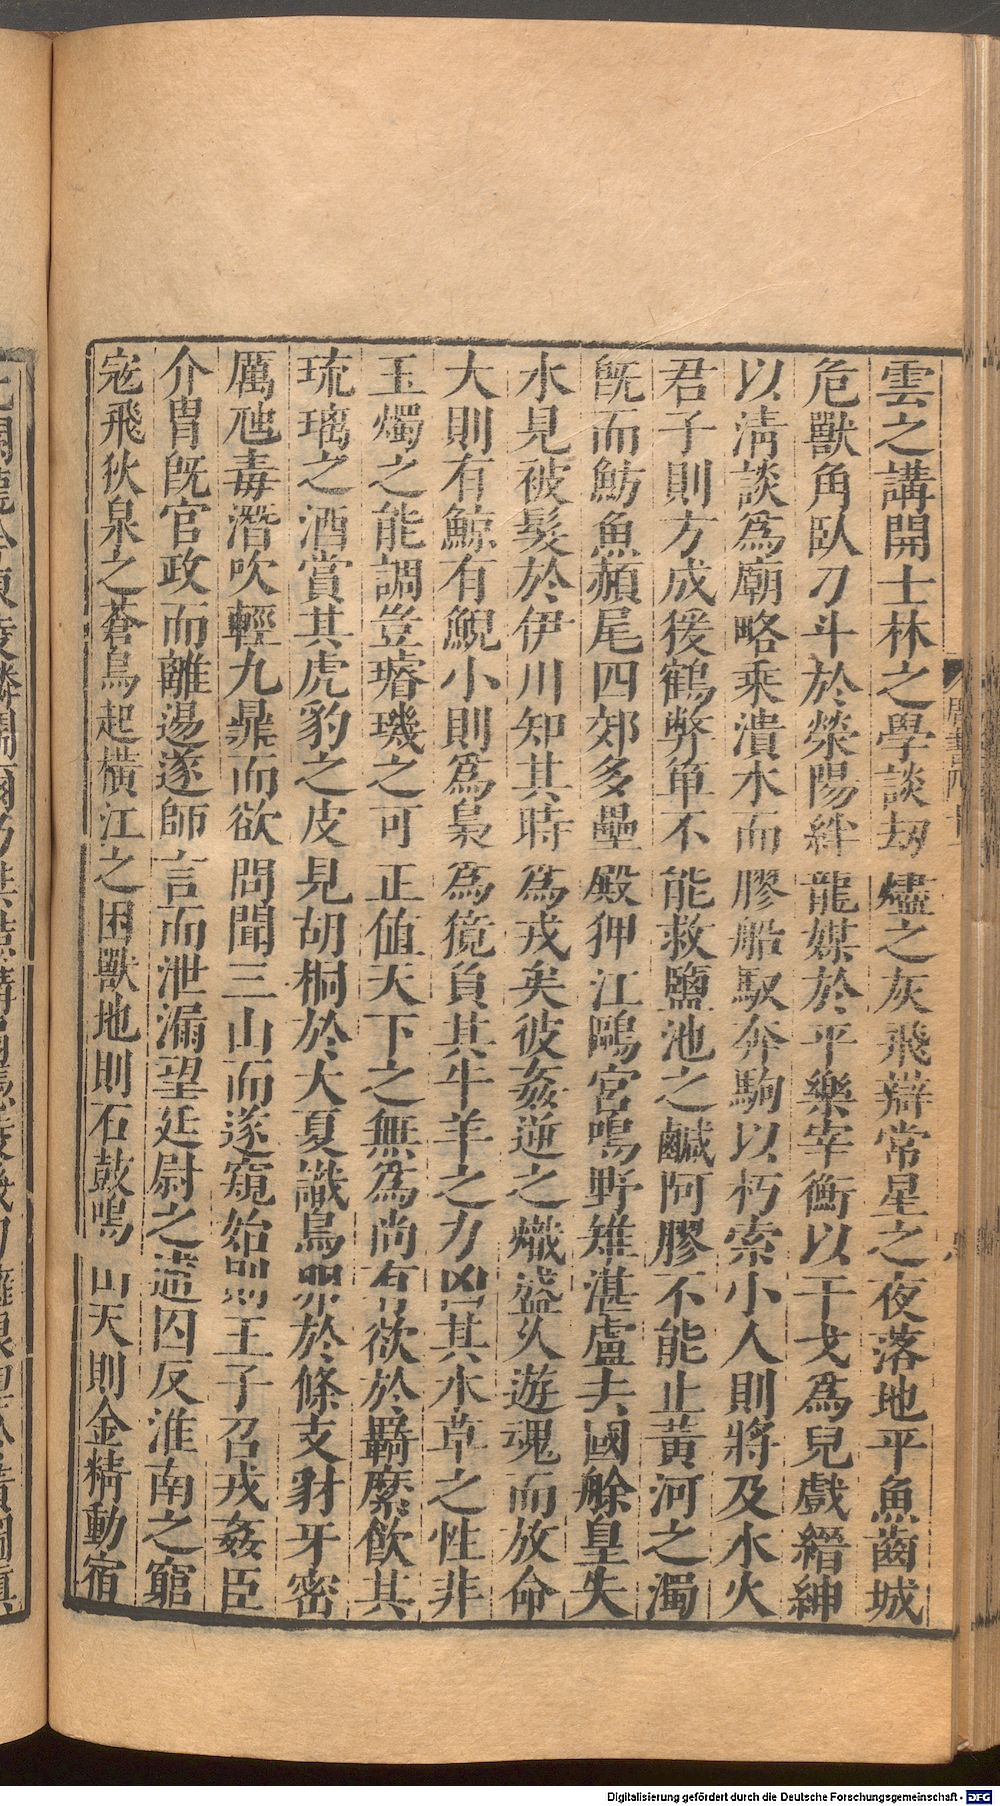 雲之講開士林之學談刼燼之灰飛辯常星之夜落地平魚齒城
危獸角臥刀斗於滎陽絆龍媒於平樂宰衡以干戈為兒戲縉紳
以淸談為廟略乗漬水而膠船馭奔駒以朽索小人則將及水火
君子則方成猨鶴弊箄不能救鹽池之鹹阿膠不能止黃河之濁
旣而魴魚赬尾四郊多壘殿狎江鷗宮鳴野雉湛盧去國艅皇失
水見被髮於伊川知其時為戎矣彼姦逆之熾盛久遊魂而放命
大則有鯨有鯢小則為梟為獍負其牛羊之力凶其水草之性非
玉燭之能調豈璿璣之可正值天下之無為尚有欲於羈縻飲其
琉璃之酒賞其虎豹之皮見胡桐於大夏識鳥卵於條支豺牙密
厲虺毒潛吹輕九鼎而欲問聞三山而遂窺始則王子召戎姦臣
介冑旣官政而離逷遂師言而泄漏望廷尉之逋囚反淮南之窮
宼飛狄泉之蒼鳥起橫江之困獸地則石鼓鳴山天則金精動宿
Digitalisierung gefördert durch die Deutsche Forschungsgemeinschaft - DFG